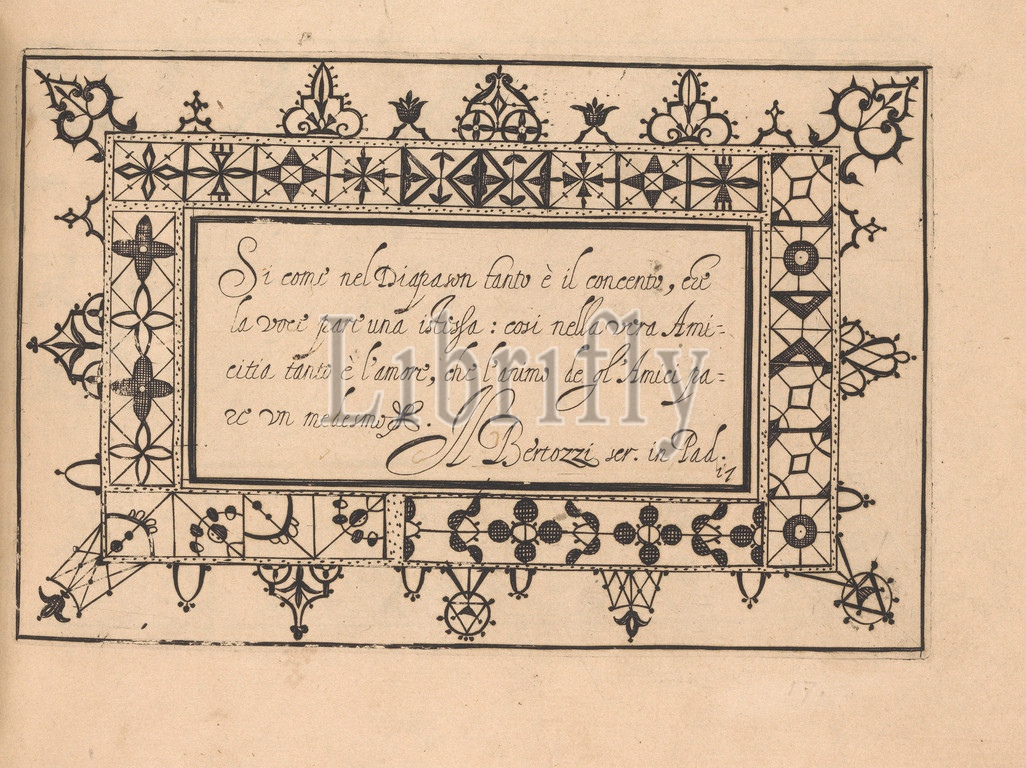 Si come nel Diapason tanto è il concento, che
la voce pare una istessa : cosi nella vera Ami-
citia tanto è l'amore, che l'animo de gl'Amici pa-
re vn medesmo.
Il Bertozzi scr. in Pad.
17
Librifly
17.